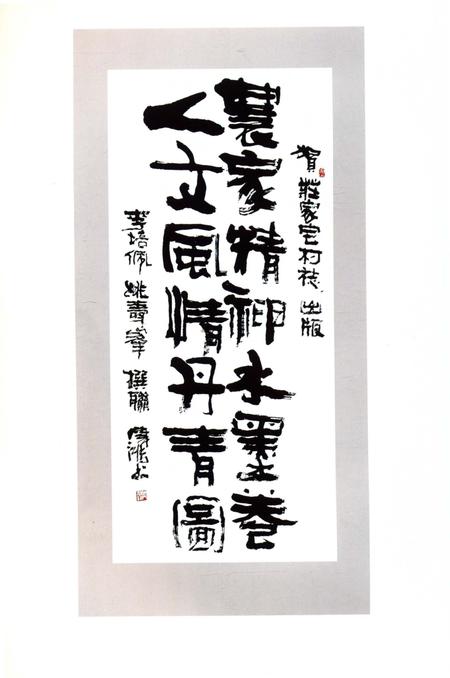 賀莊家宅村志出版
農家精神水墨卷
人文風情丹青圖
李培佩 姚壽峰 撰聯